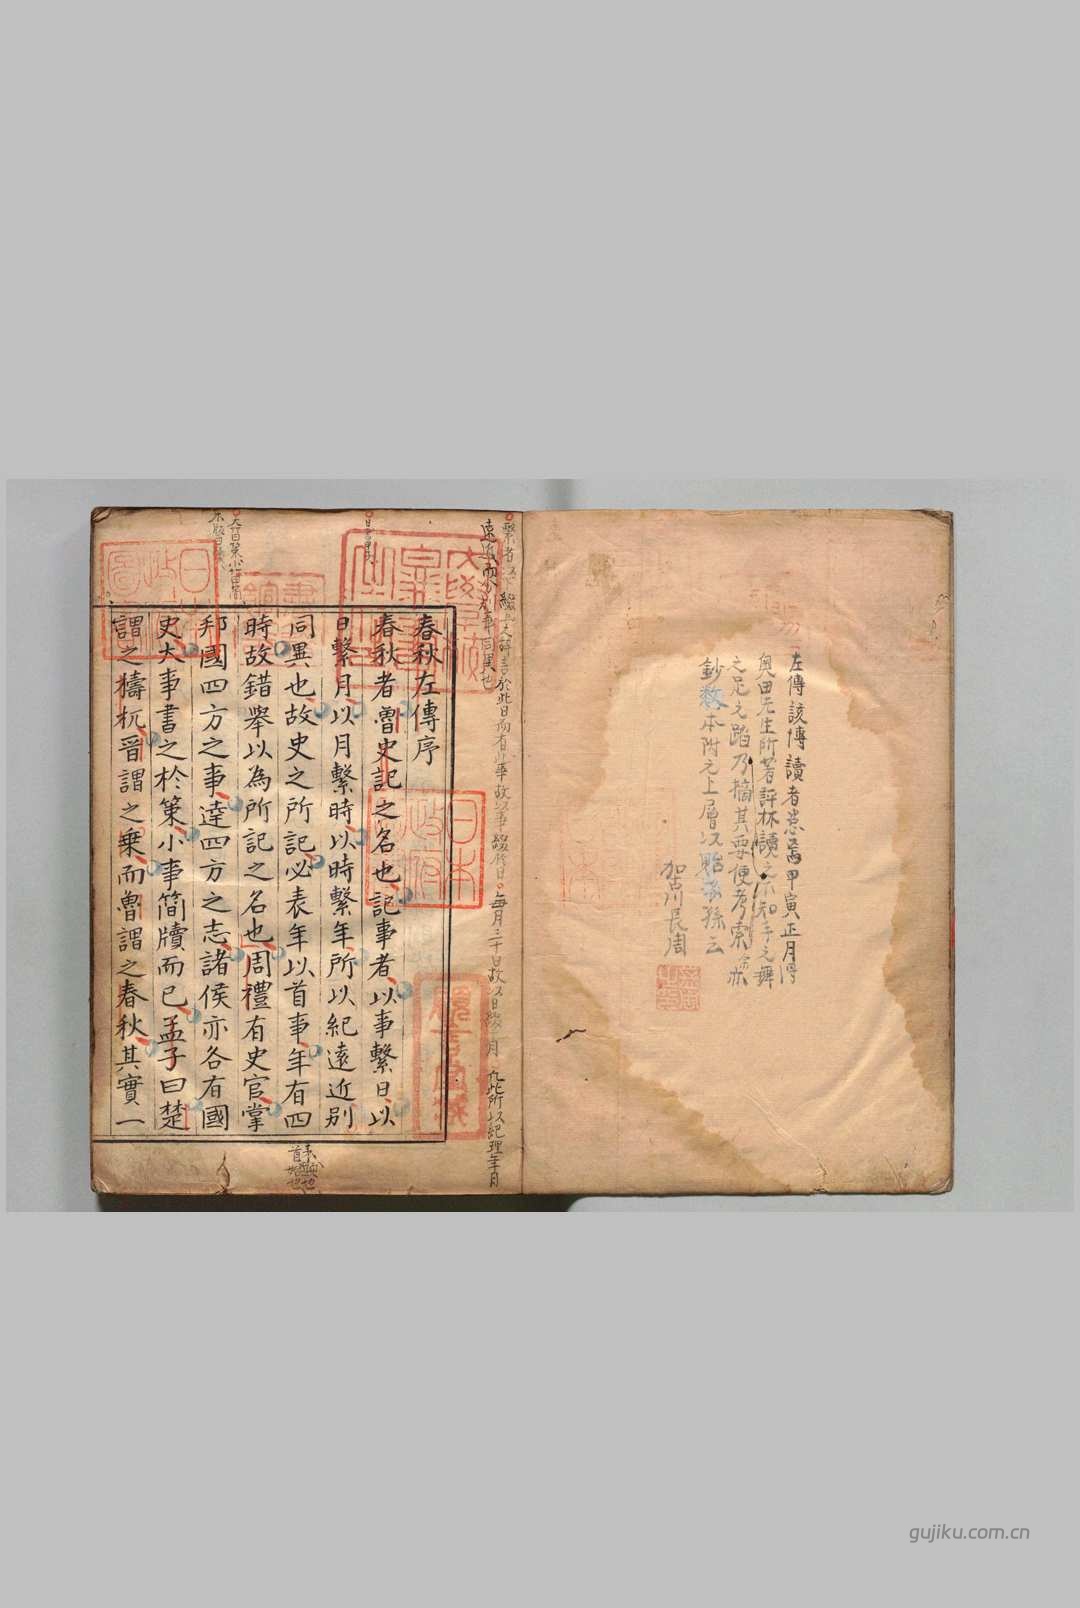 左傳該博讀者患焉甲寅正月得
奧田先生所著評林讀之不知手之舞
之足之蹈乃摘其要便考索亦
鈔數本附之上層以貽海孫云
加古川長周
遠近而分別事同異也
春秋左傳序
春秋者魯史記之名也記事者以事繫日以
日繫月以月繫時以時繫年所以紀遠近別
同異也故史之所記必表年以首事年有四
時故錯舉以為所記之名也周禮有史官掌
邦國四方之事達四方之志諸侯亦各有國
史大事書之於策小事簡牘而已孟子曰楚
謂之檮杌晉謂之乘而魯謂之春秋其實一
日本
政府
圖書
gujiku.com.cn